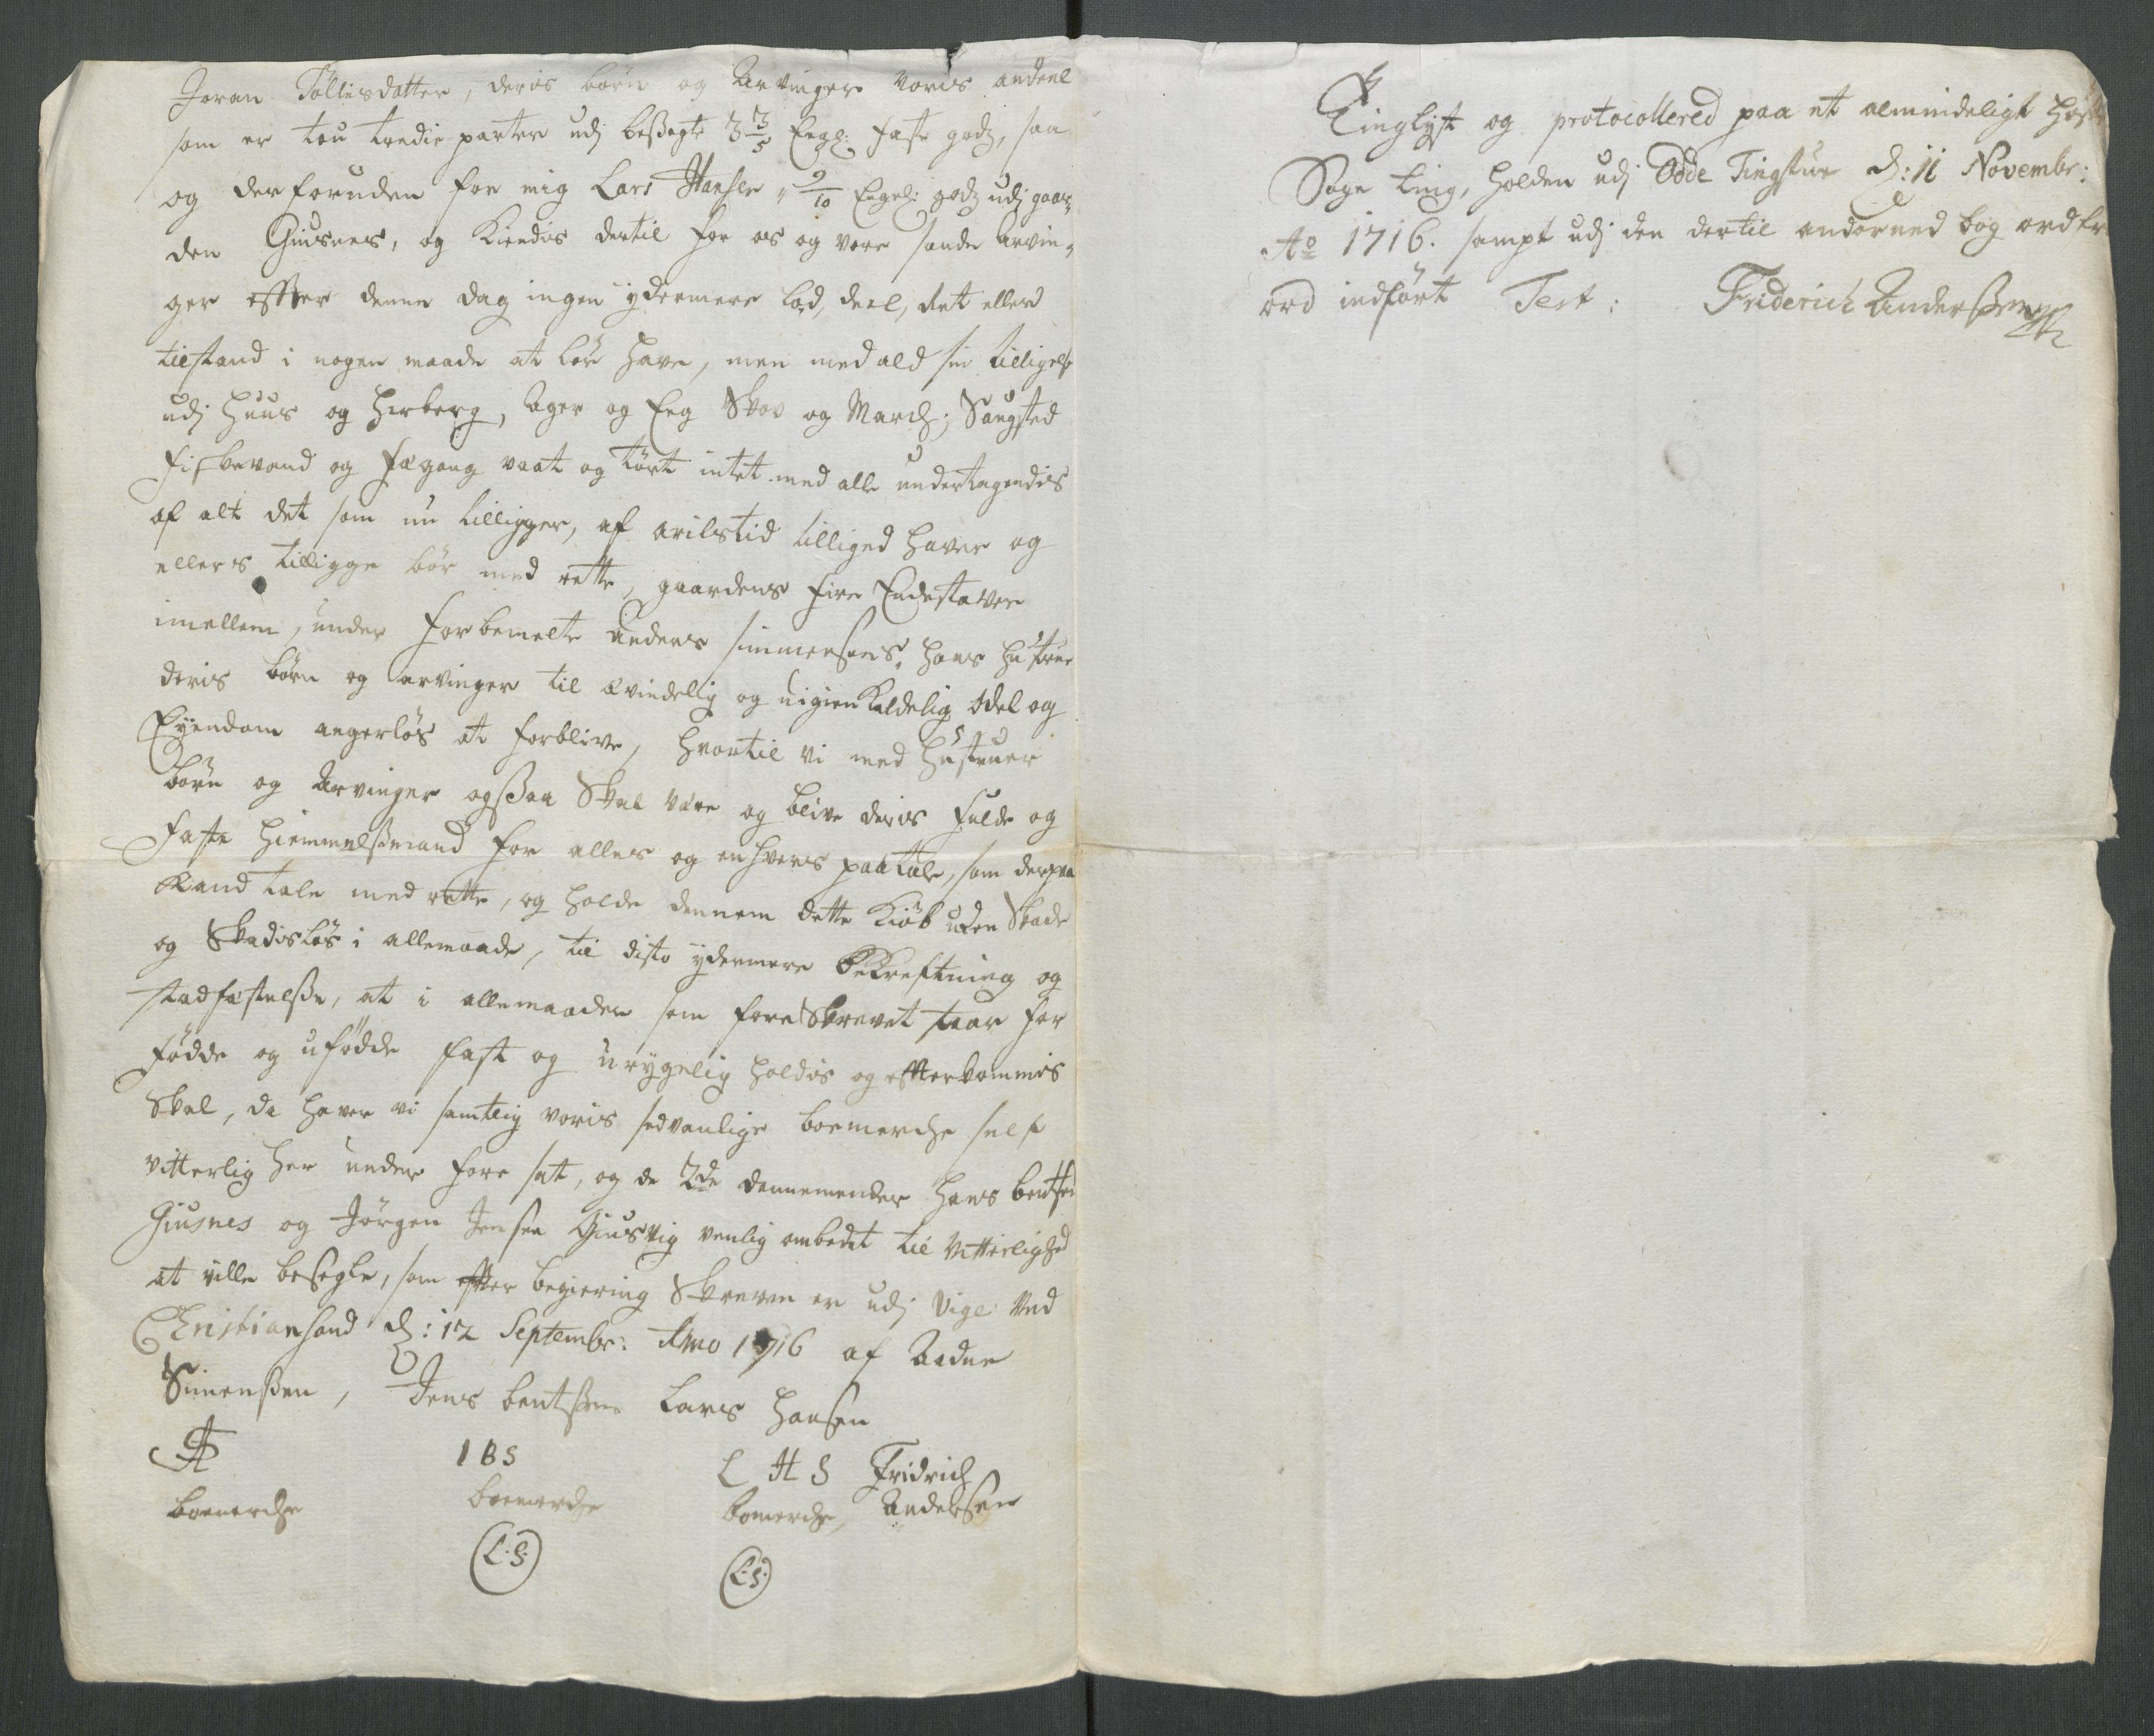 Joran Tollisdatter, deris børn og Arvinger voris andeel
som er tou tredie parter udj beßagte 3 3/5 Engl: faste godz, saa
og derforuden for mig Lars Hansen " 9/10 Engel: godz udj gaar,
den Giusnes, og Kiendis dertil for os og vore sande Arvin,
ger effter denne dag ingen ydermere lod, deel, Ret eller
tilstand i nogen maade at løe have, men med ald sin tilligelse
udj Huus og Herberg, Ager og Eng Skov og March; Saugsted
fiskevand og fægang vaat og tørt intet med alle undertagendis
af alt det som nu tilligger, af arilstid tilliged haver og
ellers tilligge bør med rette, gaardens fire Endestaver
imellem, under forbemelte Anders Simmensens, hans Hustrue
deris børn og arvinger til ævindelig og uigienkaldelig odel og
Eyendom angerløs at forblive, hvortil vi med Hustruer
børn og Arvinger ogßaa Skal være og blive deris fulde og
faste Hiemmelßmand for alles og enhvers paatale, som derpaa
Kand tale med rette, og holde dennem dette Kiøb uden Skade
og Skadisløs i allemaade, til disto ydermere bekreftning og
stadfæstelße, at i allemaader som foreskrevet staar for
fødde og ufødde fast og urygelig holdis og effterkommis
Skal, da haver vi samtlig voris sedvanlige boemerche self
vitterlig her under fore sat, og de 2de dannemender Hans bentsen
Giusnes og Jørgen Jensen Giusvig venlig ombedet til Vitterlighed
at ville besegle, som effter begiering Skreven er udj Vige Ved
Christiansand d: 12 Septembr: Anno 1716 af Aadne
Simenßen, Jens bentßen Lars Hansen
AS IBS L H S Fridrich
boemerche boemerche bomerche, Andersen
(L.S.) (L.S.)
Tinglyst og protocollered paa et almindeligt høste
Sage ting, holden udj Odde Tingstue d: 11 Novembr:
Ao 1716. sampt udj den dertil andorned bog ord for
ord indført Test: Friderich Anderßen